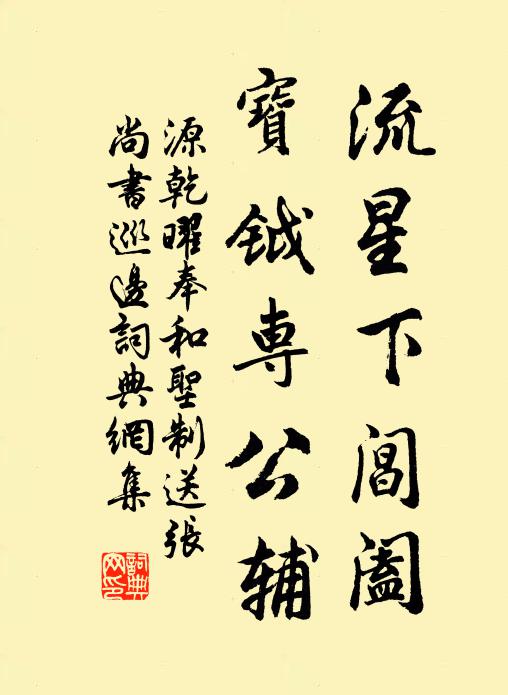 流星下閶闔
寶鉞専公輔
源乾曜奉和聖制送張
尚書巡邊詞典網集
詞典
网印